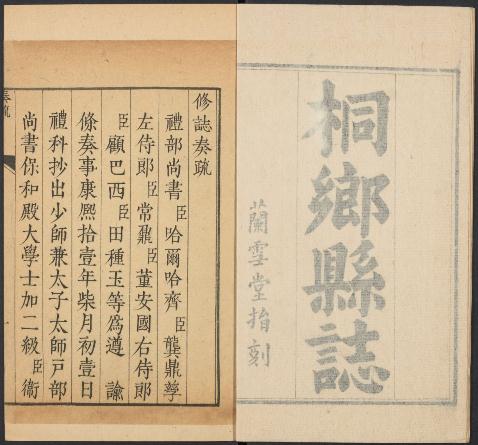 桐鄉縣誌
蘭雪堂指刻
修誌奏疏
禮部尚書臣哈爾哈齊臣龔鼎孳
左侍郎臣常鼐臣董安國右侍郎
臣顧巴西臣田種玉等爲遵諭
條奏事康熙拾壹年柒月初壹日
禮科抄出少師兼太子太師戸部
尚書保和殿大學士加二級臣衞
奏疏